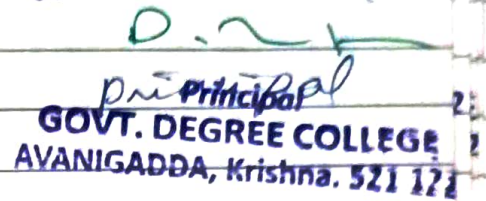 Principal
Principal
GOVT. DEGREE COLLEGE
AVANIGADDA, Krishna. 521 121